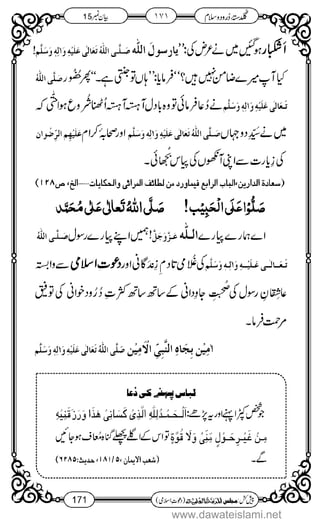 بیان نمبر 15
۱۷۱
گلدستہ درود و سلام
اشکبار ہوگئیں میں نے عرض کی: ’’یارسول اللہ صَلَّی اللہُ تَعَالٰی عَلَیْہِ وَاٰلِہٖ وَسَلَّم!
کیا آپ میرے ضامن نہیں ہیں؟‘‘ فرمایا: ’’ہاں تو جنتی ہے۔‘‘ پھر حُضُور صَلَّی اللہُ
تَعَالٰی عَلَیْہِ وَاٰلِہٖ وَسَلَّم نے دُعا فرمائی تو وہ بادل آہستہ آہستہ اُٹھنا شُروع ہوا حتّٰی کہ
میں نے سیّد دو جہاں صَلَّی اللہُ تَعَالٰی عَلَیْہِ وَاٰلِہٖ وَسَلَّم اور صحابہ کرام عَلَیْہِمُ الرِّضْوَان
کی زیارت سے اپنی آنکھوں کی پیاس بجھائی۔
(سعادة الدارین، الباب الرابع فیماورد من لطائف المرائی والحکایات ---الخ، ص۱۳۸)
صَلُّوْا عَلَی الْحَبِیْب! صَلَّی اللہُ تَعَالٰی عَلٰی مُحَمَّد
اے ہمارے پیارے اللہ عَزَّوَجَلَّ! ہمیں اپنے پیارے رسول صَلَّی اللہُ
تَعَالٰی عَلَیْہِ وَاٰلِہٖ وَسَلَّم کی غلامی تادمِ زِندگانی اور دعوتِ اسلامی سے وابستہ
عاشقانِ رسول کی صحبتِ جاودانی کے ساتھ ساتھ کثرتِ دُرُودخوانی کی توفیق
مرحمت فرما۔
اٰمِیْن بِجَاہِ النَّبِیِّ الْاَمِیْن صَلَّی اللہُ تَعَالٰی عَلَیْہِ وَاٰلِہٖ وَسَلَّم
لباس پہننے کی دُعا
جو شخص کپڑا پہنے اور یہ پڑھے: اَلْحَمْدُ لِلّٰہِ الَّذِیْ کَسَانِیْ ھٰذَا وَرَزَقَنِیْہِ
مِنْ غَیْرِ حَوْلٍ مِّنِّیْ وَلَا قُوَّۃٍ تو اس کے اگلے پچھلے گناہ مُعاف ہو جائیں
گے۔
(شعب الایمان، ۱۸۱/۵، حدیث:۶۲۸۵)
171
www.dawateislami.net